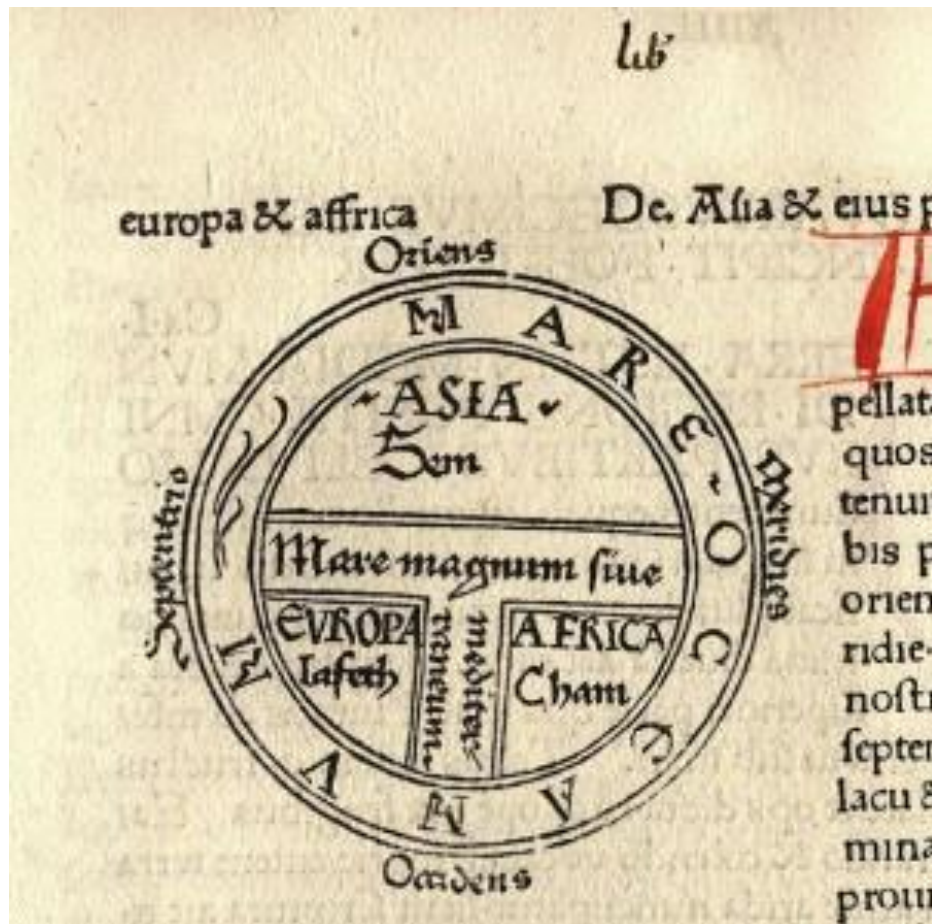 lib
europa & affrica
De. Asia & eius p
Oriens
MARE OCCEANVM
Septentrio
Meridies
ASIA
Sem
Mare magnum siue
mediter
raneum
EVROPA
Iafeth
AFRICA
Cham
Occidens
pellata
quos
tenui
bis p
orien
ridie
nostr
septen
lacu &
mina
prouin